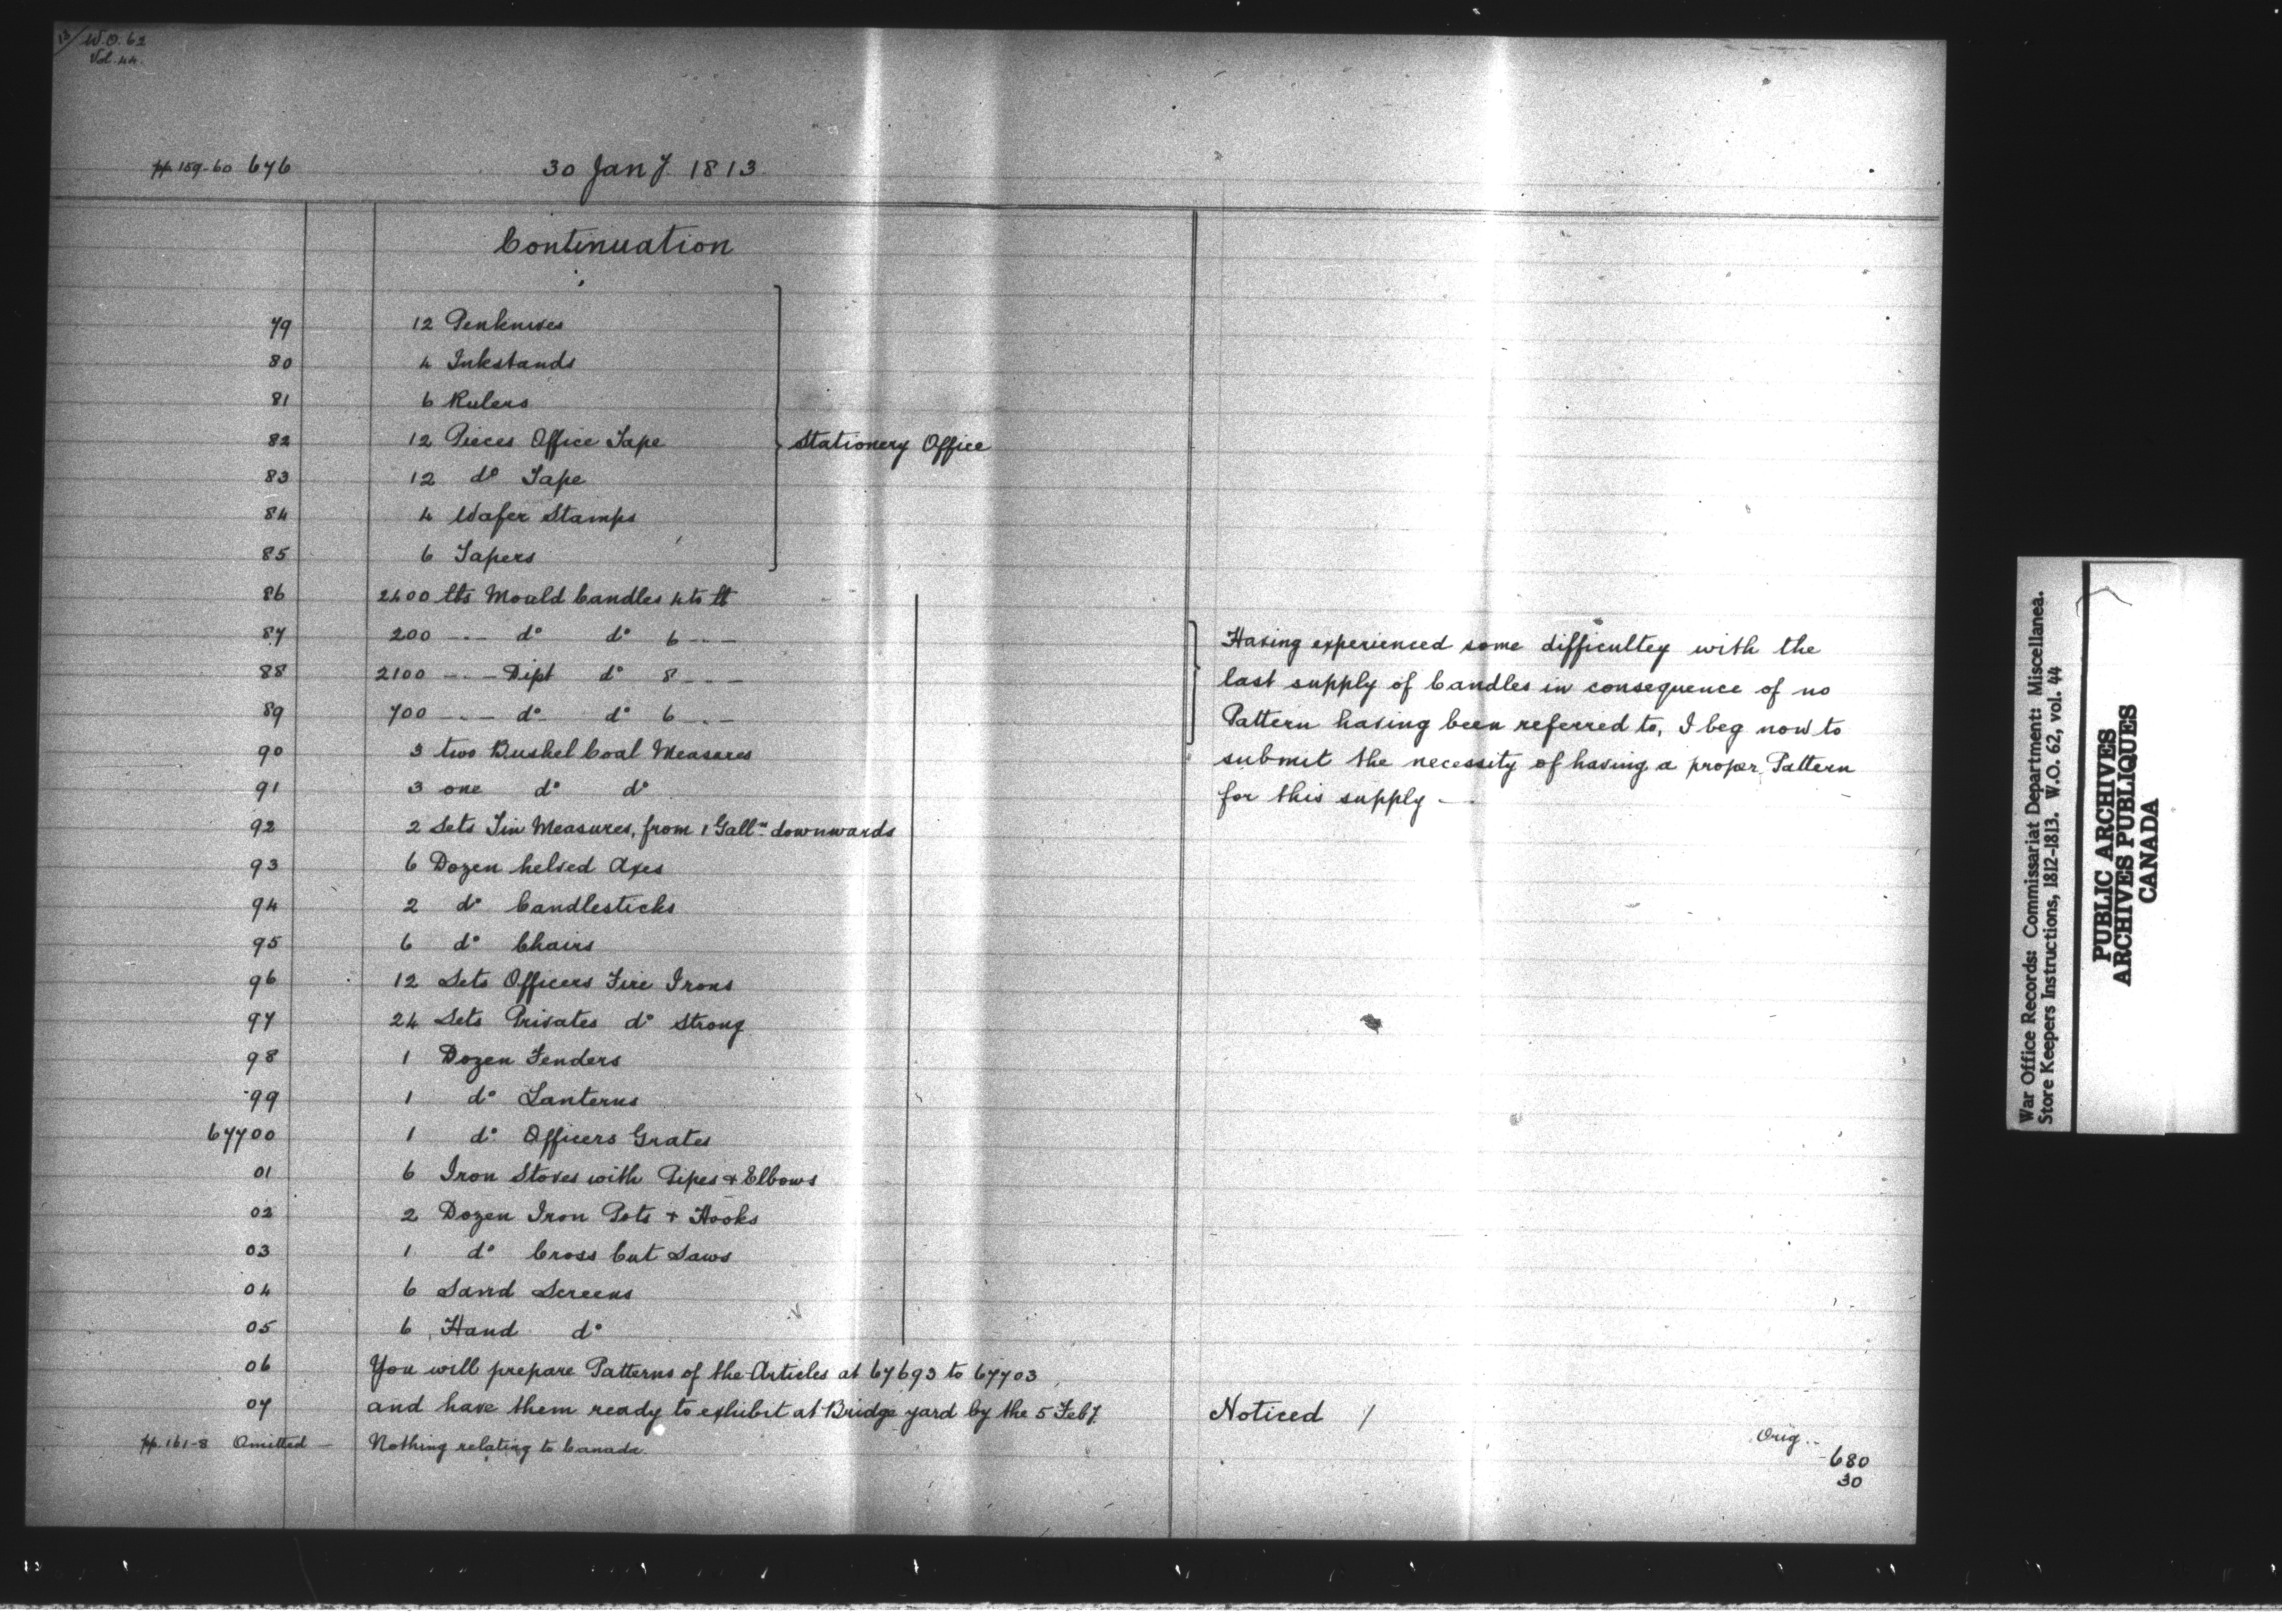 13/ W.O. 62
Vol. 44.
pp. 159-60 676 30 Jan7 1813
Continuation
79 12 Penknives
80 4 Inkstands
81 6 Rulers
82 12 Pieces Office Tape Stationery Office
83 12 do Tape
84 4 Wafer Stamps
85 6 Tapers
86 2400 lbs Mould Candles 4 to lb
87 200 --- do do 6 ---
88 2100 --- Dipt do 8 ---
89 700 --- do do 6 ---
90 3 two Bushel Coal Measures
91 3 one do do
92 2 Sets Tin Measures, from 1 Galln downwards
93 6 Dozen helved Axes
94 2 do Candlesticks
95 6 do Chairs
96 12 Sets Officers Fire Irons
97 24 Sets Privates do Strong
98 1 Dozen Fenders
99 1 do Lanterns
67700 1 do Officers Grates
01 6 Iron Stoves with Pipes + Elbows
02 2 Dozen Iron Pots + Hooks
03 1 do Cross Cut Saws
04 6 Sand Screens
05 6 Hand do
06 You will prepare Patterns of the Articles at 67693 to 67703
07 and have them ready to exhibit at Bridge yard by the 5 Feb7.
pp. 161-8 Omitted — Nothing relating to Canada.
Having experienced some difficultey with the
last supply of Candles in consequence of no
Pattern having been referred to, I beg now to
submit the necessity of having a proper Pattern
for this supply —
Noticed /
Orig..
680
30
War Office Records: Commissariat Department: Miscellanea.
Store Keepers Instructions, 1812-1813. W.O. 62, vol. 44
PUBLIC ARCHIVES
ARCHIVES PUBLIQUES
CANADA